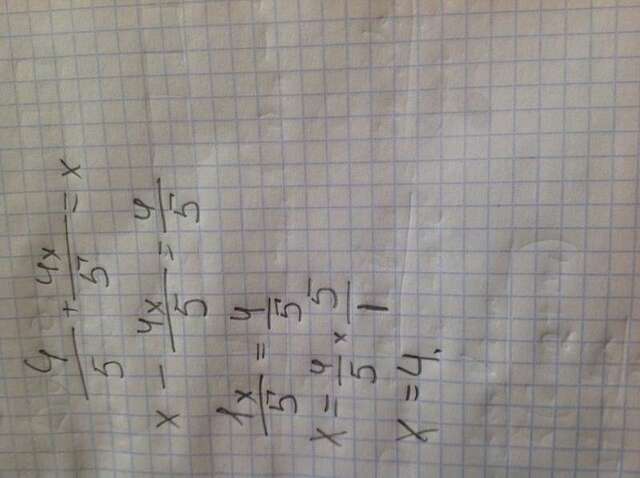 4/5 + 4x/5 = x
x - 4x/5 = 4/5
1x/5 = 4/5
x = 4/5 × 5/1
x = 4.